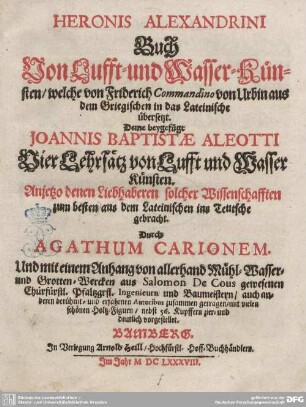 HERONIS ALEXANDRINI
Buch
Von Lufft- und Wasser-Kün-
sten/ welche von Friderich Commandino von Urbin aus
dem Griegischen in das Lateinische
übersetzt.
Deme beygefügt
JOANNIS BAPTISTÆ ALEOTTI
Vier Lehrsätz von Lufft und Wasser
Künsten.
Anjetzo denen Liebhaberen solcher Wissenschafften
zum besten/ aus dem Lateinischen ins Teutsche
gebracht.
Durch
AGATHUM CARIONEM.
Und mit einem Anhang von allerhand Mühl- Wasser-
und Grotten-Wercken aus Salomon De Cous gewesenen
Chürfürstl. Pfaltzgrfl. Ingenieurn und Baumeistern/ auch an-
deren berühmt- und erfahrnen Autoribus zusammen getragen/ mit vielen
schönen Holtz-Figurn/ nebst 36. Kupffern zier- und
deutlich vorgestellet.
BAMBERG,
In Verlegung Arnold Heill/ Hochfürstl. Hoff-Buchhändlers.
Im Jahr M DC LXXXVIII.